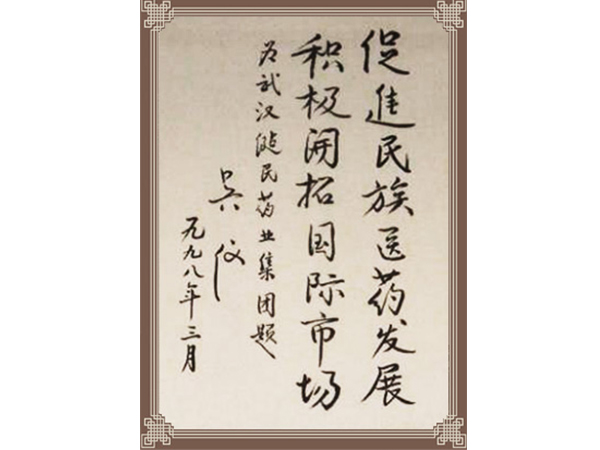 促进民族医药发展
积极开拓国际市场
为武汉健民药业集团题
吴仪
一九九八年三月